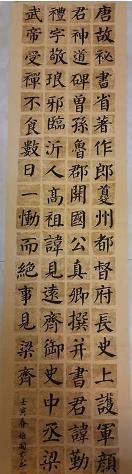 唐故秘書省著作郎夔州都督府長史上護軍顏
君神道碑曾孫魯郡開國公真卿撰并書君諱勤
禮字敬琅邪臨沂人高祖諱見遠齊御史中丞梁
武帝受禪不食數日一慟而絕事見梁齊
壬寅春